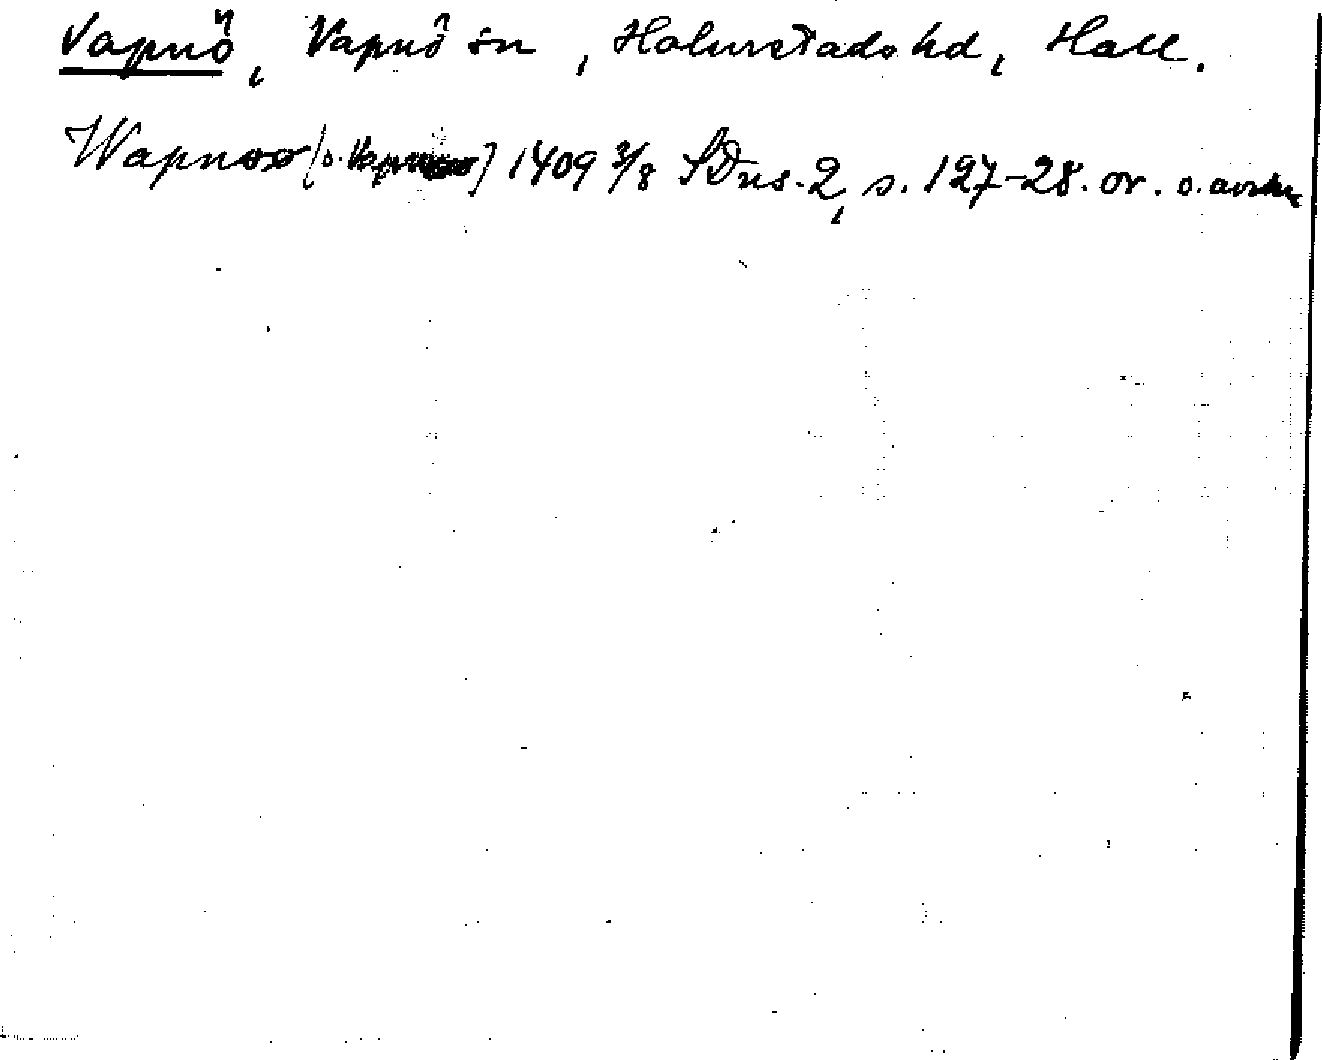 Vapnö, Vapnö sn, Halmstads hd, Hall.
Wapnøø [o. Vapnøø] 1409 3/8 SDns. 2, s. 127-28. or. o. avskr.